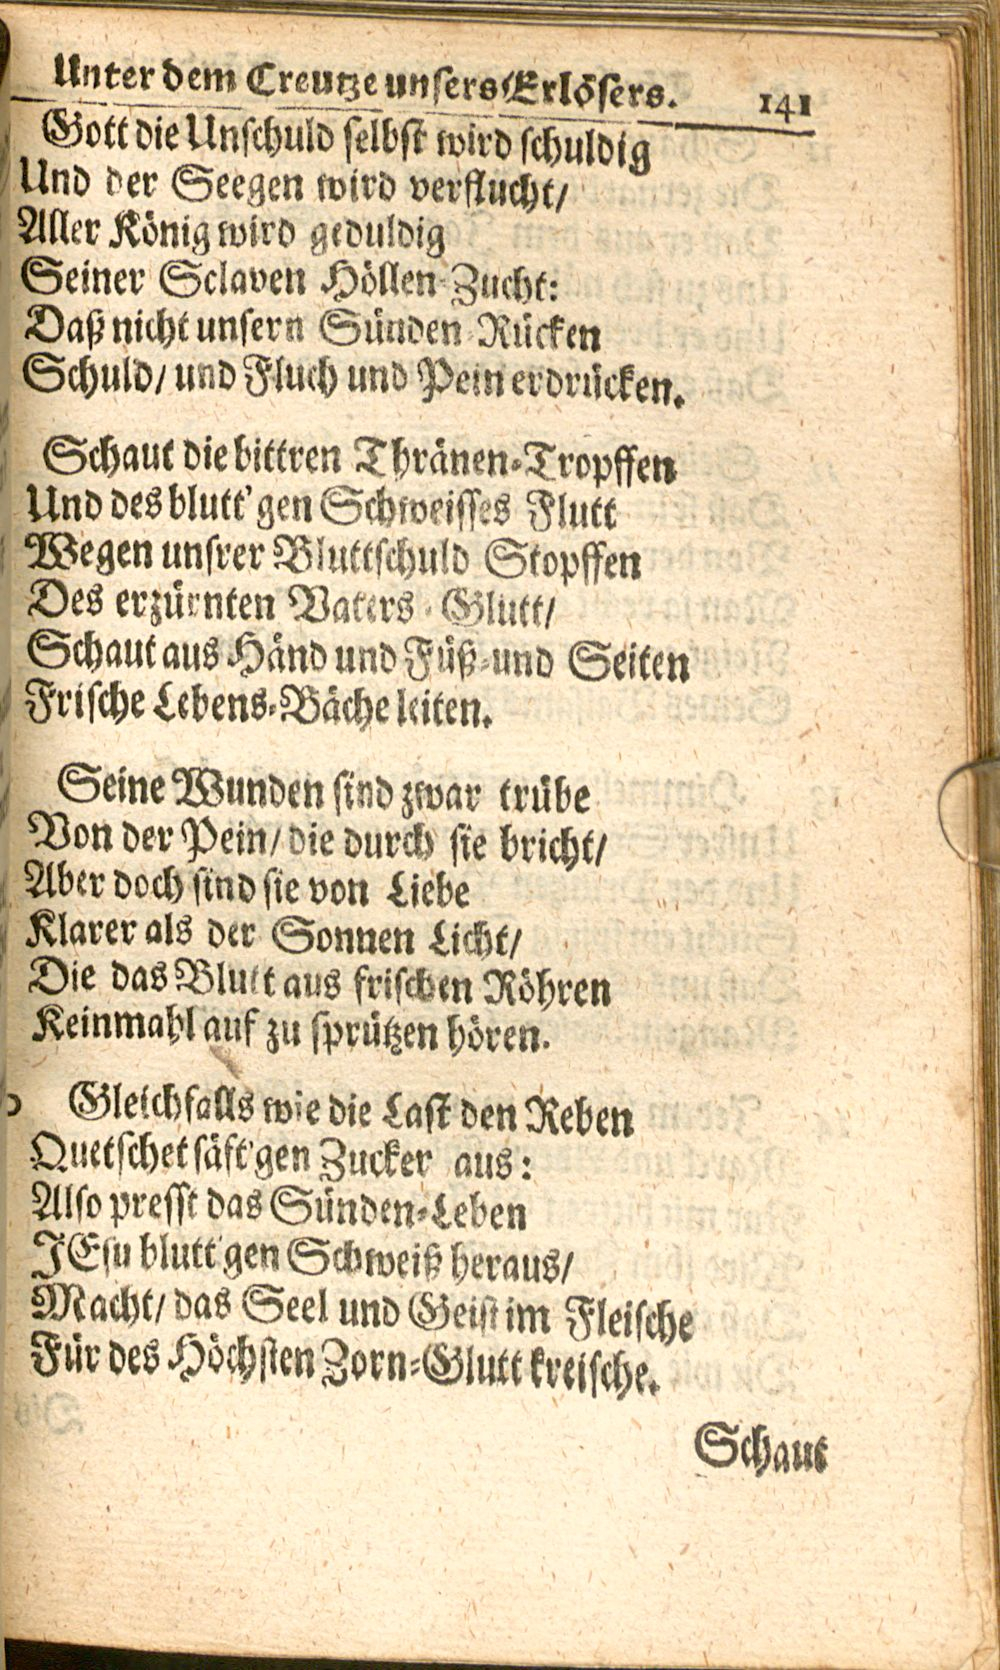 Unter dem Creutze unsers Erlösers. 141
Gott die Unschuld selbst wird schuldig
Und der Seegen wird verflucht/
Aller König wird geduldig
Seiner Sclaven Höllen-Zucht:
Daß nicht unsern Sünden-Rücken
Schuld/ und Fluch und Pein erdrücken.
Schaut die bittren Thränen-Tropffen
Und des blutt'gen Schweisses Flutt
Wegen unsrer Bluttschuld Stopffen
Des erzürnten Vaters-Glutt/
Schaut aus Händ und Füß-und Seiten
Frische Lebens-Bäche leiten.
Seine Wunden sind zwar trübe
Von der Pein/ die durch sie bricht/
Aber doch sind sie von Liebe
Klarer als der Sonnen Licht/
Die das Blutt aus frischen Röhren
Keinmahl auf zu sprützen hören.
Gleichfalls wie die Last den Reben
Quetschet säft'gen Zucker aus:
Also presst das Sünden-Leben
JEsu blutt'gen Schweiß heraus/
Macht/ das Seel und Geist im Fleische
Für des Höchsten Zorn-Glutt kreische.
Schaut